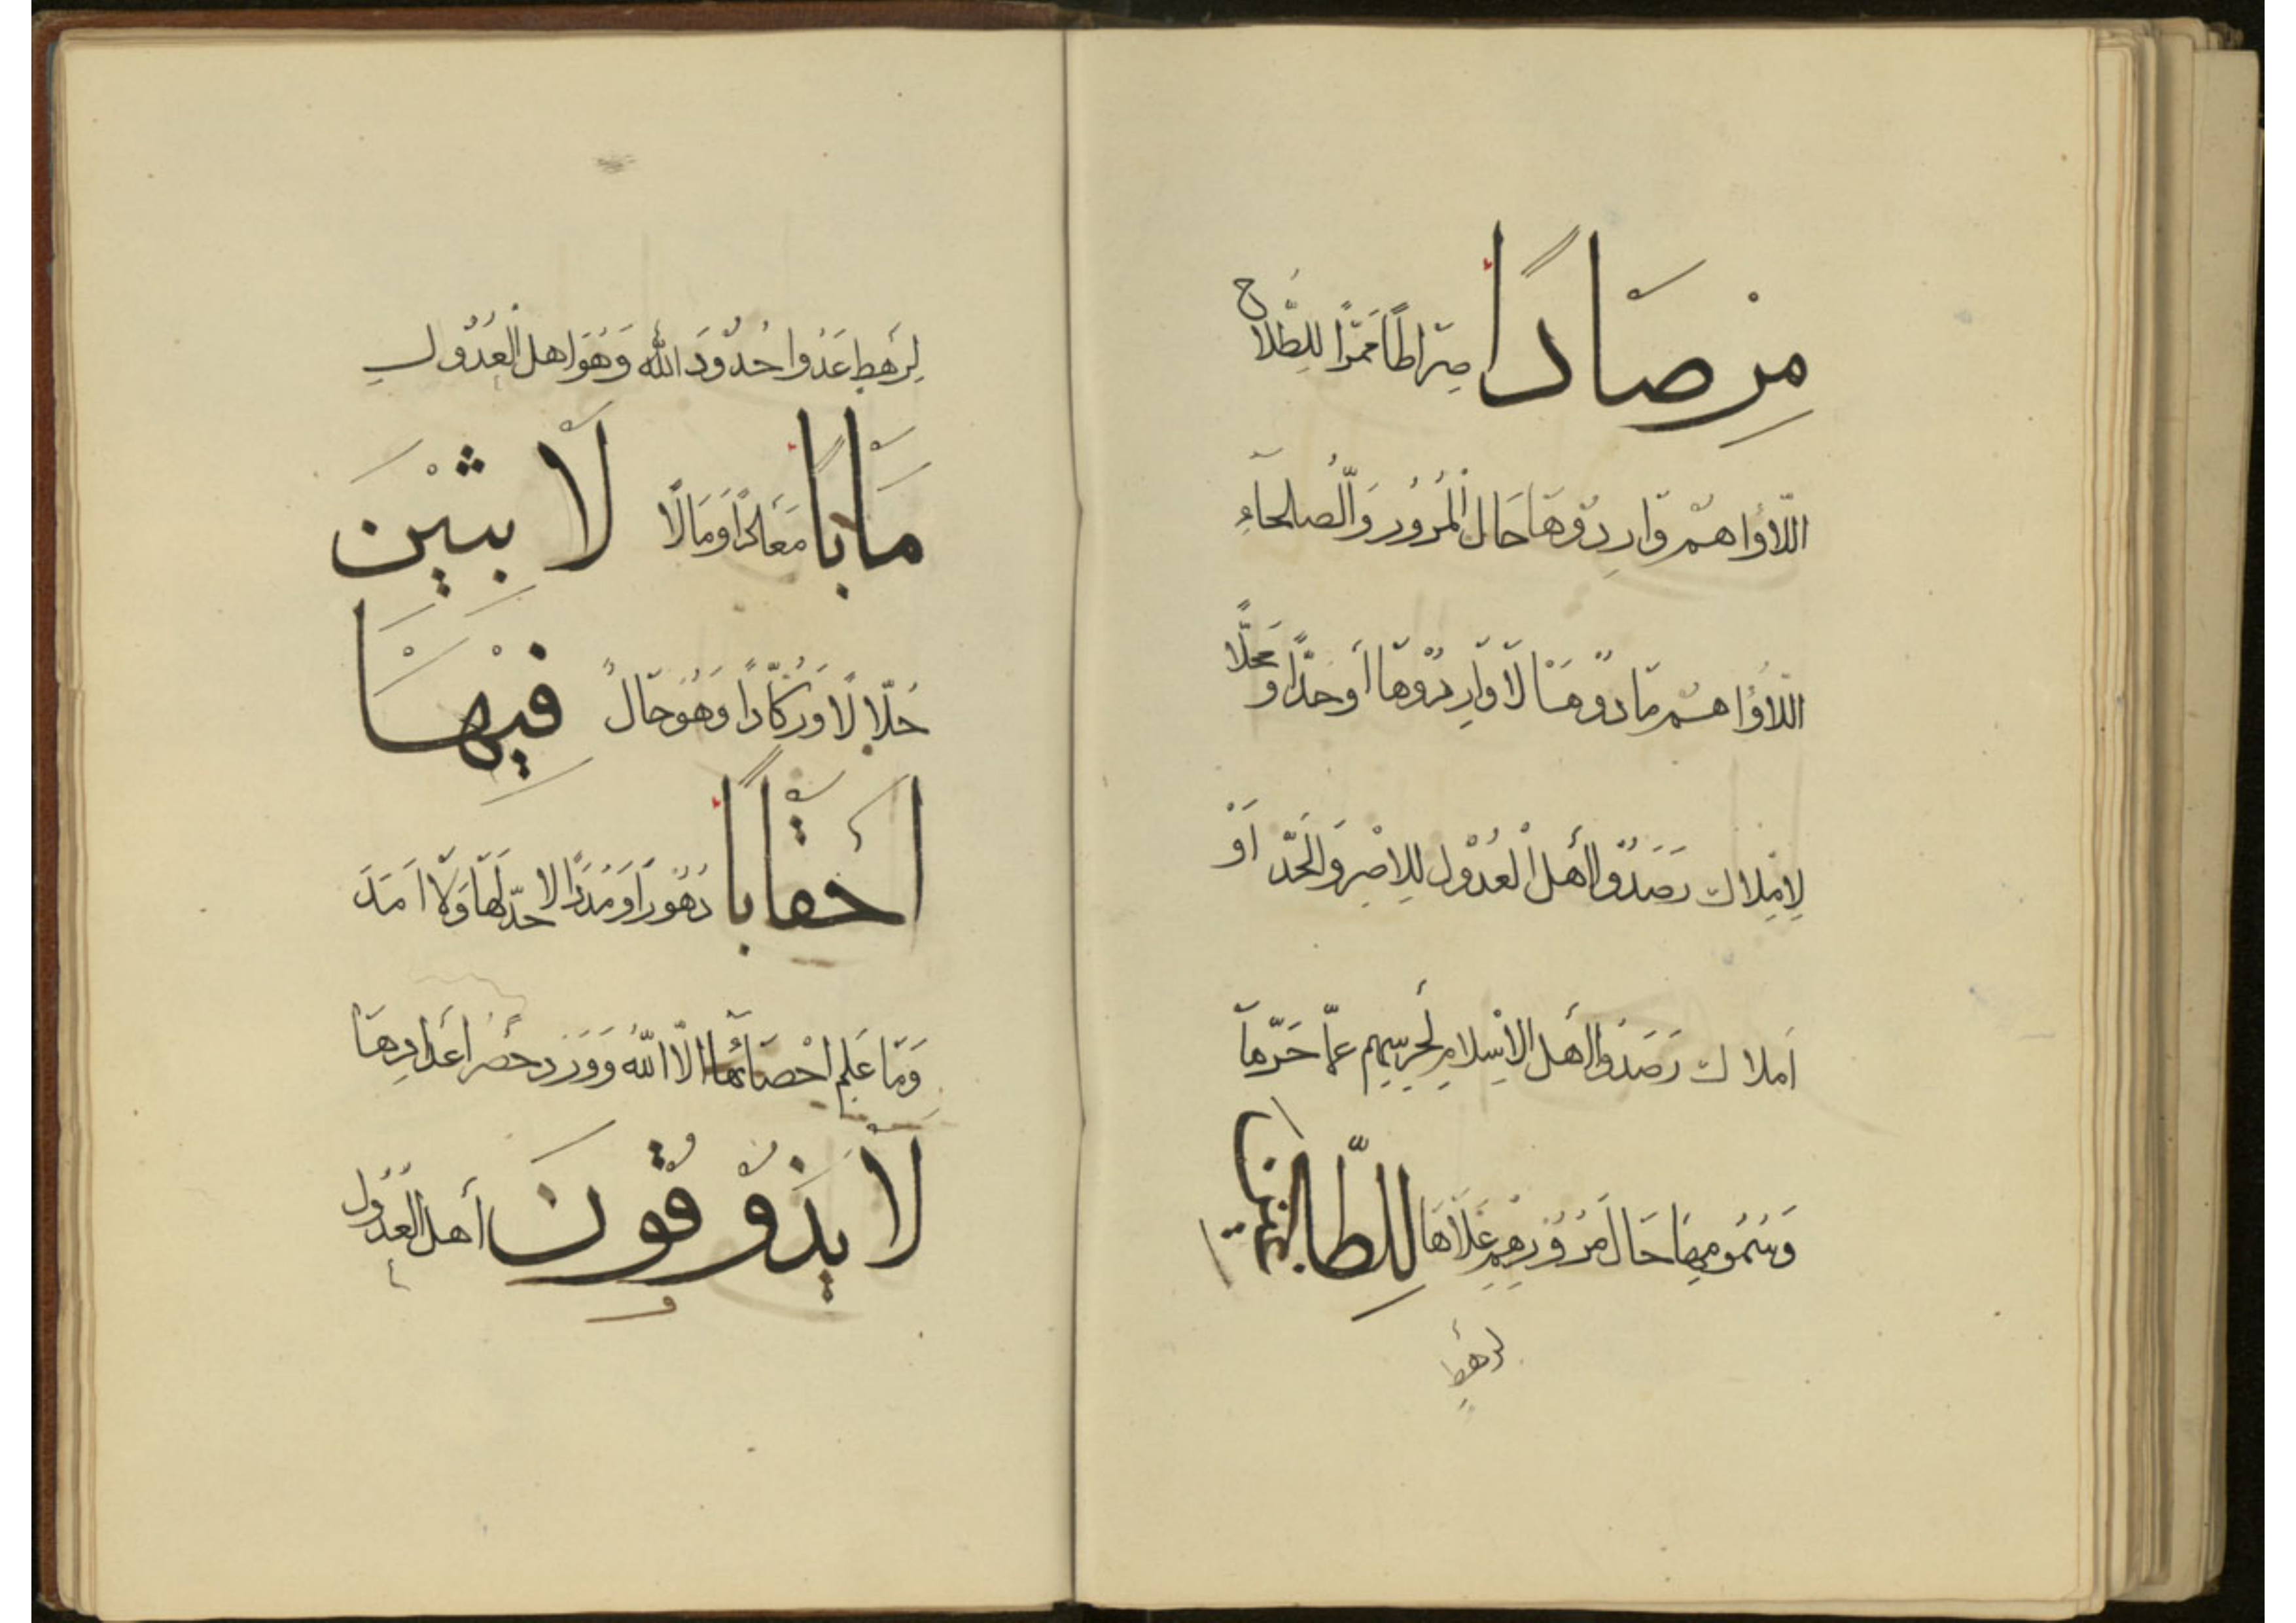 مِرْصَادًا صِرَاطًا مَمَرًّا لِلطُّلَّاحِ
اللَّاؤُا هُمْ وَارِدُوهَا حَالَ الْمُرُورِ وَالصُّلَحَآءِ
اللَّاؤُا هُمْ مَادُوهَا لَا وَارِدُوهَا أَوْ حَدًّا وَمَحَلًّا
لِأَمْلَاكٍ رَصَدُوا أَهْلَ الْعُدُولِ لِلْإِصْرِ وَالْحَدِّ أَوْ
أَمْلَاكٍ رَصَدُوا أَهْلَ الْإِسْلَامِ لِحَرْسِهِمْ عَمَّا حَرِّهَا
وَسُمُومِهَا حَالَ مُرُورِهِمْ عَلَاهَا لِلطَّاغِيْنَ
لِرَهْطٍ
لِرَهْطٍ عَدَوْا حُدُودَ اللهِ وَهُوَ أَهْلُ الْعُدُولِ
مَاٰبًا مَعَادًا وَمَآلًا لَابِثِيْنَ
حُلَّالًا وَرُكَّادًا وَهُوَ حَالٌ فِيْهَا
أَحْقَابًا دُهُورًا وَمُدَدًا لَا حَدَّ لَهَا وَلَا أَمَدَ
وَمَا عَلِمَ إِحْصَائَهَا إِلَّا اللهُ وَوَرَدَ حَصْرُ أَعْدَادِهَا
لَا يَذُوْقُوْنَ أَهْلُ الْعُدُولِ